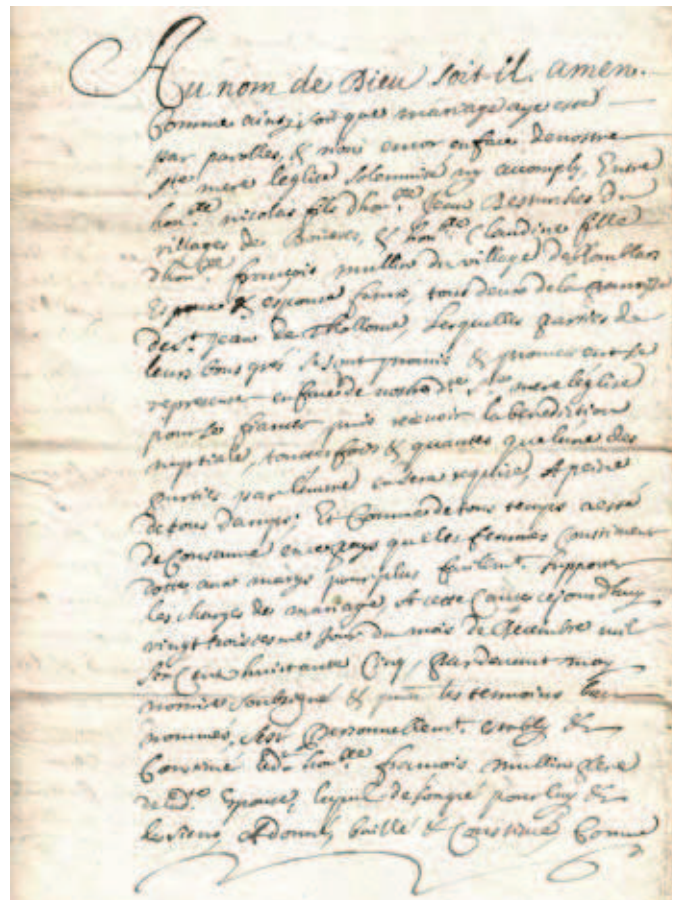 Au nom de Dieu soit-il amen.
Comme ainsy soit que mariage aye esté
par parolles, & non encor en face de nostre
Ste mere leglise solemnisé ny accomply, Entre
honble nicolas fils dhonble Jean Desturches du
villages de & honble Claudine fille
dhonble françois mullin du village de
Espoux & espouse future, tous deux de la parroisse
de St Jean de Thollome, Lesquelles parties de
leurs bons gré se sont promis & promettent se
representer en face de nostre dte Ste mere léglise
pour se puis recevoir la benediction
nuptiale, toutesfois & quantes que lune des
parties par lautre en sera requise, A peine
de tous damps; Et Comme de tous temps a esté
de Coustume en ce pays que les femmes Constituent
dotte aux marys pour plus facilemt. supporter
les charges des mariage, A cette Cause cejourdhuy
vingt troisiesme Jour du mois de decembre mil
six Cent huictante Cinq, pardevant moy
notaire soubsigné & les temoins bas
nommés, s'est Personnellemt. estably &
Constitué ledt honble francois mullin pere
de ladte Espouse, lequel de son gré pour luy &
les siens, A donné, baillé & Constitué, Comme